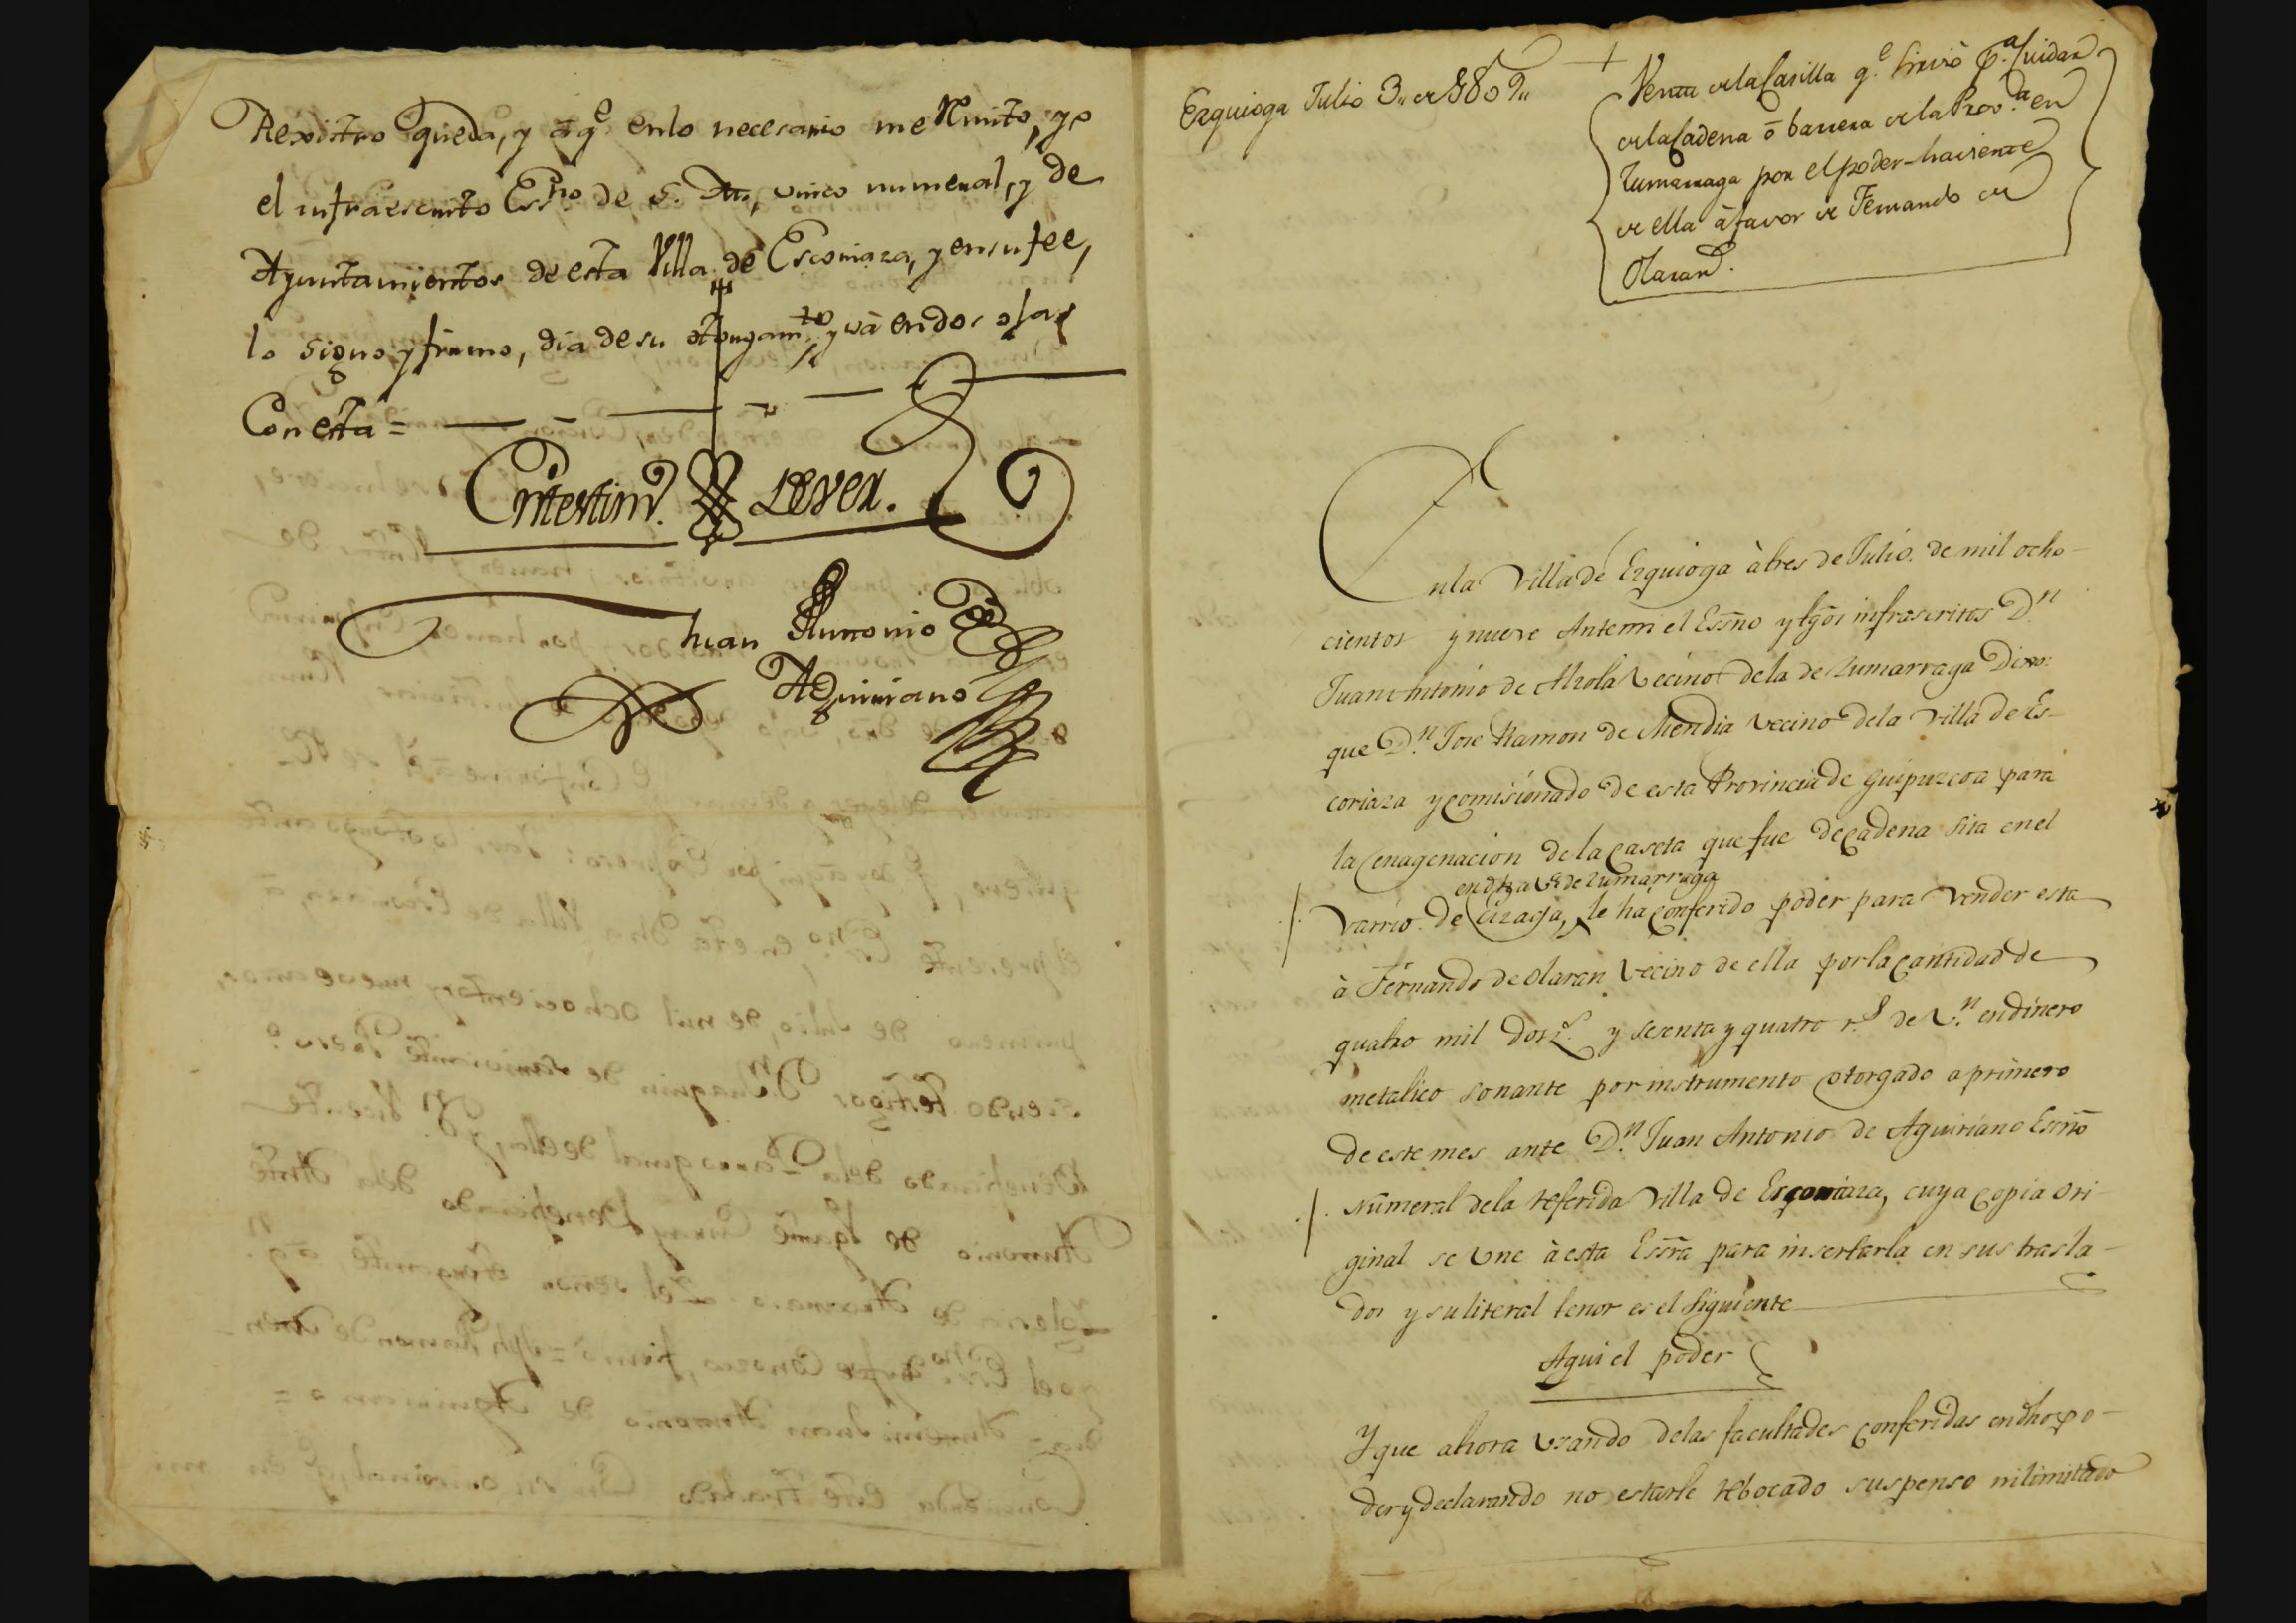 Rexistro queda, y a q.e en lo necesario me Rmito, yo
el infraescrito Ess.no de S. M., unico numeral, y de
Ayuntamientos de esta Villa de Escoriaza, y en su fee,
lo signo y firmo, dia de su otorgam.to y vá en dos ojas
Con esta =
En testim.o de verd.
Juan Antonio de
Aguiriano
Ezquioga Julio 3,, de 1809,,
Venta de la Casilla q.e sirvió p.a Cuidar
de la Cadena ó barrera de la Prov.a en
Zumarraga por el poder-haviente
de ella à favor de Fernando de
Olaran.
En la Villa de Ezquioga à tres de Julio de mil ocho-
cientos y nueve Antemi el Essno y tgōs infrascritos D.n
Juan Antonio de Alzola Vecino de la de Zumarraga Dixo:
que D.n Jose Ramon de Mendia Vecino de la Villa de Es-
coriaza y comisionado de esta Provincia de Guipuzcoa para
la enagenacion de la caseta que fue de cadena sita en el
en dha V.a de Zumarraga
varrio de Eizaga, le ha conferido poder para vender esta
à Fernando de Olaran Vecino de ella por la cantidad de
quatro mil dosz.s y sesenta y quatro r.s de V.n en dinero
metalico sonante por instrumento otorgado a primero
de este mes ante D.n Juan Antonio de Aguiriano Essno
Numeral de la referida Villa de Escoriaza, cuya copia ori-
ginal se une à esta Essra para insertarla en sus trasla-
dos y su literal tenor es el siguiente
Aqui el poder
Y que ahora usando de las facultades conferidas en dho po-
der y declarando no estarle rebocado suspenso ni limitado